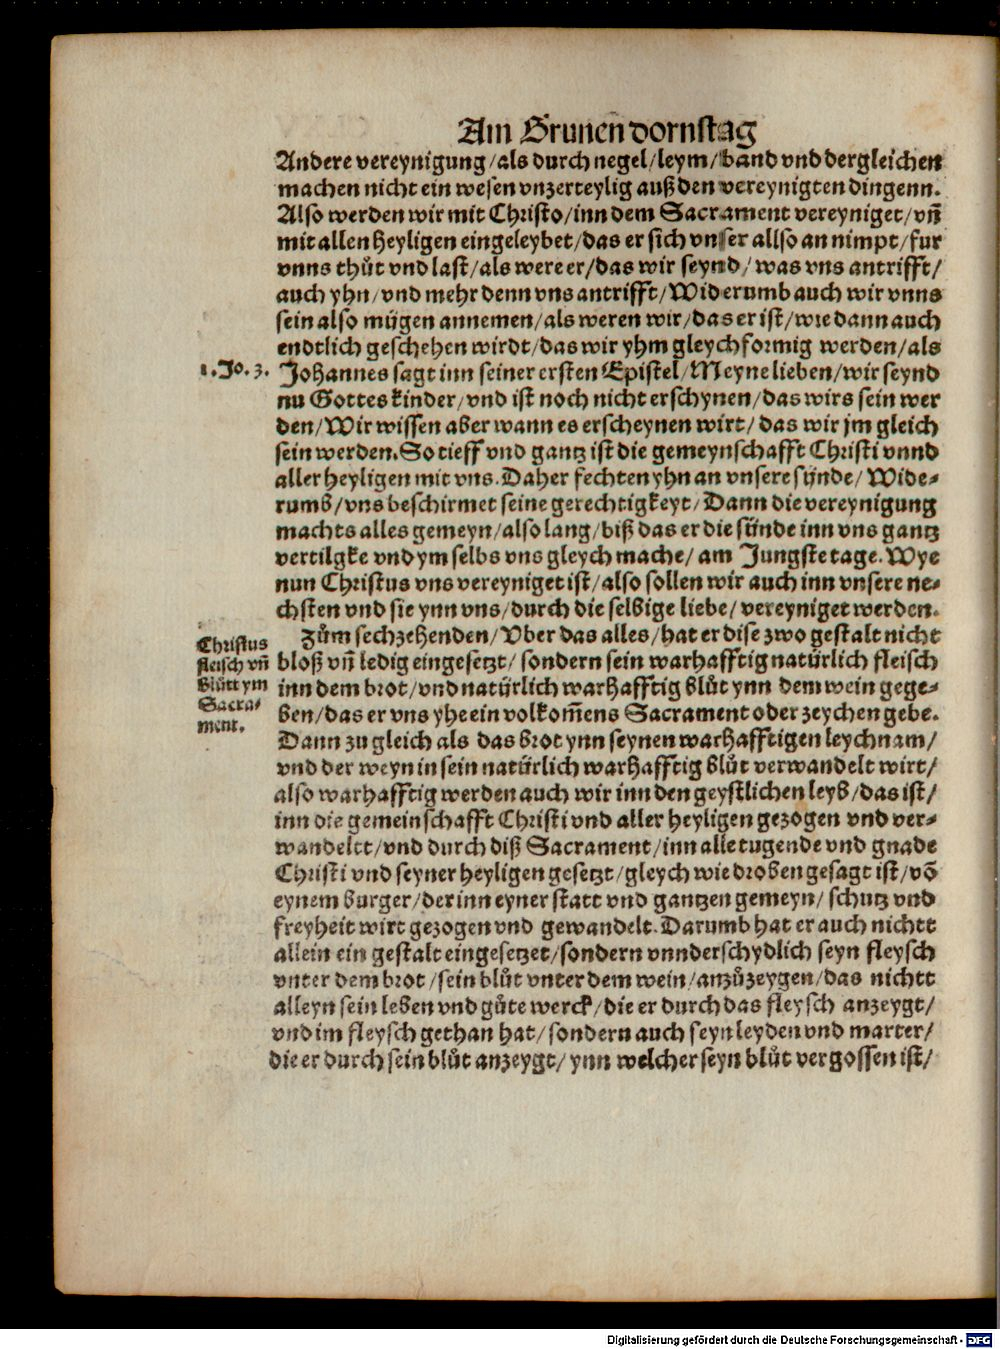 Am Grunen dornstag
Andere vereynigung/als durch negel/leym/band vnd dergleichen
machen nicht ein wesen vnzerteylig auß den vereynigten dingenn.
Also werden wir mit Christo/inn dem Sacrament vereyniget/vñ
mit allen heyligen eingeleybet/das er sich vnser allso an nimpt/fur
vnns thůt vnd last/als were er/das wir seynd/was vns antrifft/
auch yhn/vnd mehr denn vns antrifft/Widerumb auch wir vnns
sein also mügen annemen/als weren wir/das er ist/wie dann auch
endtlich geschehen wirdt/das wir yhm gleychformig werden/als
1.Jo.3.
Johannes sagt inn seiner ersten Epistel/Meyne lieben/wir seynd
nu Gottes kinder/vnd ist noch nicht erschynen/das wirs sein wer
den/Wir wissen aber wann es erscheynen wirt/das wir jm gleich
sein werden. So tieff vnd gantz ist die gemeynschafft Christi vnnd
aller heyligen mit vns. Daher fechten yhn an vnsere sünde/Wide-
rumb/vns beschirmet seine gerechtigkeyt/Dann die vereynigung
machts alles gemeyn/also lang/biß das er die sünde inn vns gantz
vertilgke vnd ym selbs vns gleych mache/am Jungste tage. Wye
nun Christus vns vereyniget ist/also sollen wir auch inn vnsere ne-
chsten vnd sie ynn vns/durch die selbige liebe/vereyniget werden.
Christus
fleisch vñ
blůtt ym
Sacra-
ment.
Zům sechzehenden/Vber das alles/hat er dise zwo gestalt nicht
bloß vñ ledig eingesetzt/sondern sein warhafftig natürlich fleisch
inn dem brot/vnd natürlich warhafftig blůt ynn dem wein gege-
ben/das er vns yhe ein volkom̃ens Sacrament oder zeychen gebe.
Dann zu gleich als das brot ynn seynen warhafftigen leychnam/
vnd der weyn in sein natürlich warhafftig blůt verwandelt wirt/
also warhafftig werden auch wir inn den geystlichen leyb/das ist/
inn die gemeinschafft Christi vnd aller heyligen gezogen vnd ver-
wandelt/vnd durch diß Sacrament/inn alle tugende vnd gnade
Christi vnd seyner heyligen gesetzt/gleych wie droben gesagt ist/võ
eynem burger/der inn eyner statt vnd gantzen gemeyn/schutz vnd
freyheit wirt gezogen vnd gewandelt. Darumb hat er auch nichtt
allein ein gestalt eingesetzet/sondern vnnderschydlich seyn fleysch
vnter dem brot/sein blůt vnter dem wein/anzůzeygen/das nichtt
alleyn sein leben vnd gůte werck/die er durch das fleysch anzeygt/
vnd im fleysch gethan hat/sondern auch seyn leyden vnd marter/
die er durch sein blůt anzeygt/ynn welcher seyn blůt vergossen ist/
Digitalisierung gefördert durch die Deutsche Forschungsgemeinschaft - DFG